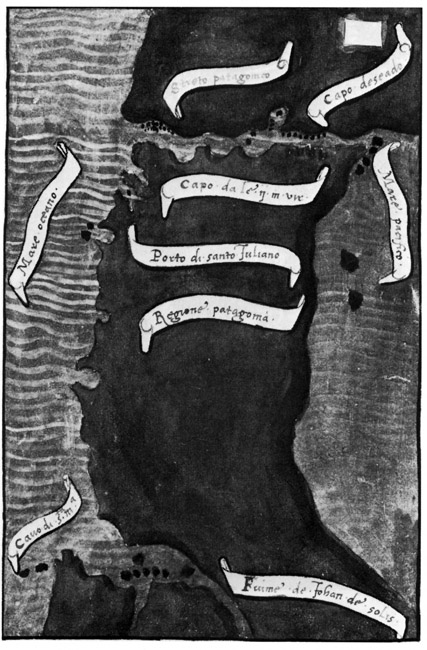 Streto patagonico
Capo deseado
Mare oceano.
Capo da le .ij. m vir
Mare pacifico
Porto di santo Juliano
Regione patagoma.
Cavo di s. mᵃ
Fiume de Johan de solis